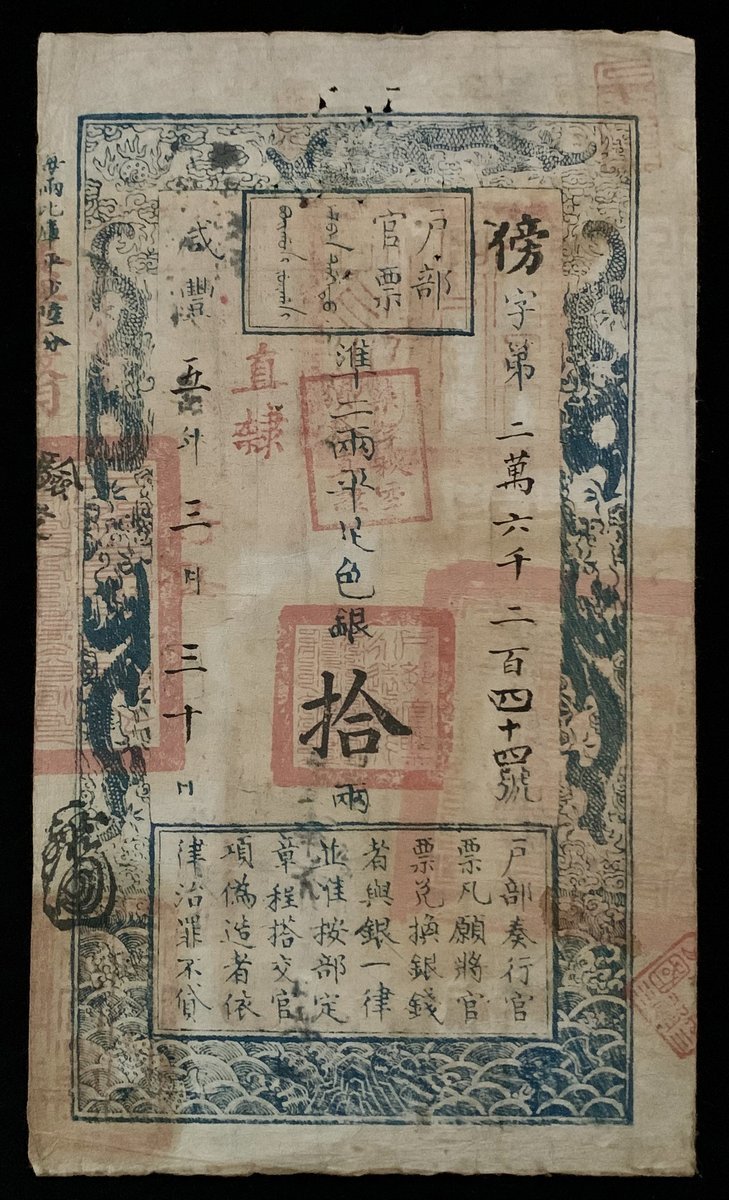 傍字第二萬六千二百四十四號
戶部
官票
準二兩平足色銀拾兩
直隸
咸豐五年三月三十日
每兩比庫平少陸分
戶部奏行官
票凡願將官
票兌換銀錢
者與銀一律
並准按部定
章程搭交官
項偽造者依
律治罪不貸